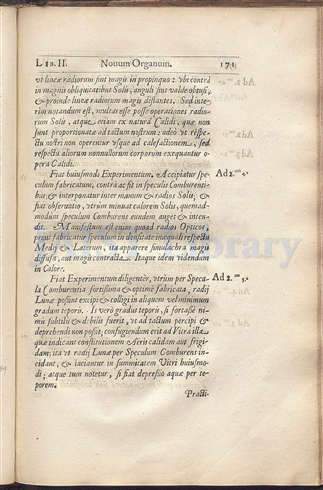 LIB. II. Nouum Organum. 171
vt lineæ radiorum sint magis in propinquo: vbi contrà
in magnis obliquitatibus Solis, anguli sint valde obtusi,
& proinde lineæ radiorum magis distantes. Sed inte-
rim notandum est, multas esse posse operationes radio-
rum Solis, atque etiam ex naturâ Calidi, quæ non
sunt proportionatæ ad tactum nostrum: adeò vt respe-
ctu nostri non operentur vsque ad calefactionem, sed
respectu aliorum nonnullorum corporum exequantur o-
pera Calidi.
Fiat huiusmodi Experimentum. Accipiatur spe- Ad 2.
culum fabricatum, contrà ac fit in speculis Comburenti-
bus; & interponatur inter manum & radios Solis; &
fiat obseruatio, vtrum minuat calorem Solis, quemad-
modum speculum Comburens eundem auget & inten-
dit. Manifestum est enim quoad radios Opticos,
prout fabricatur speculum in densitate inæquali respectu
Medij & Laterum, ita apparere simulachra magis
diffusa, aut magis contracta. Itaque idem videndum
in Calore.
Fiat Experimentum diligenter, vtrùm per Specu- Ad 2.
la Comburentia fortissima & optimè fabricata, radij
Lunæ possint excipi & colligi in aliquem vel minimum
gradum teporis. Is verò gradus teporis, si fortasse ni-
mis subtilis & debilis fuerit, vt ad tactum percipi &
deprehendi non possit; confugiendum erit ad Vitra illa
quæ indicant constitutionem Aëris calidam aut frigi-
dam; ita vt radij Lunæ per Speculum Comburens inci-
dant, & iaciantur in summitatem Vitri huiusmo-
di; atque tum notetur, si fiat depressio aquæ per te-
porem.
Practi-